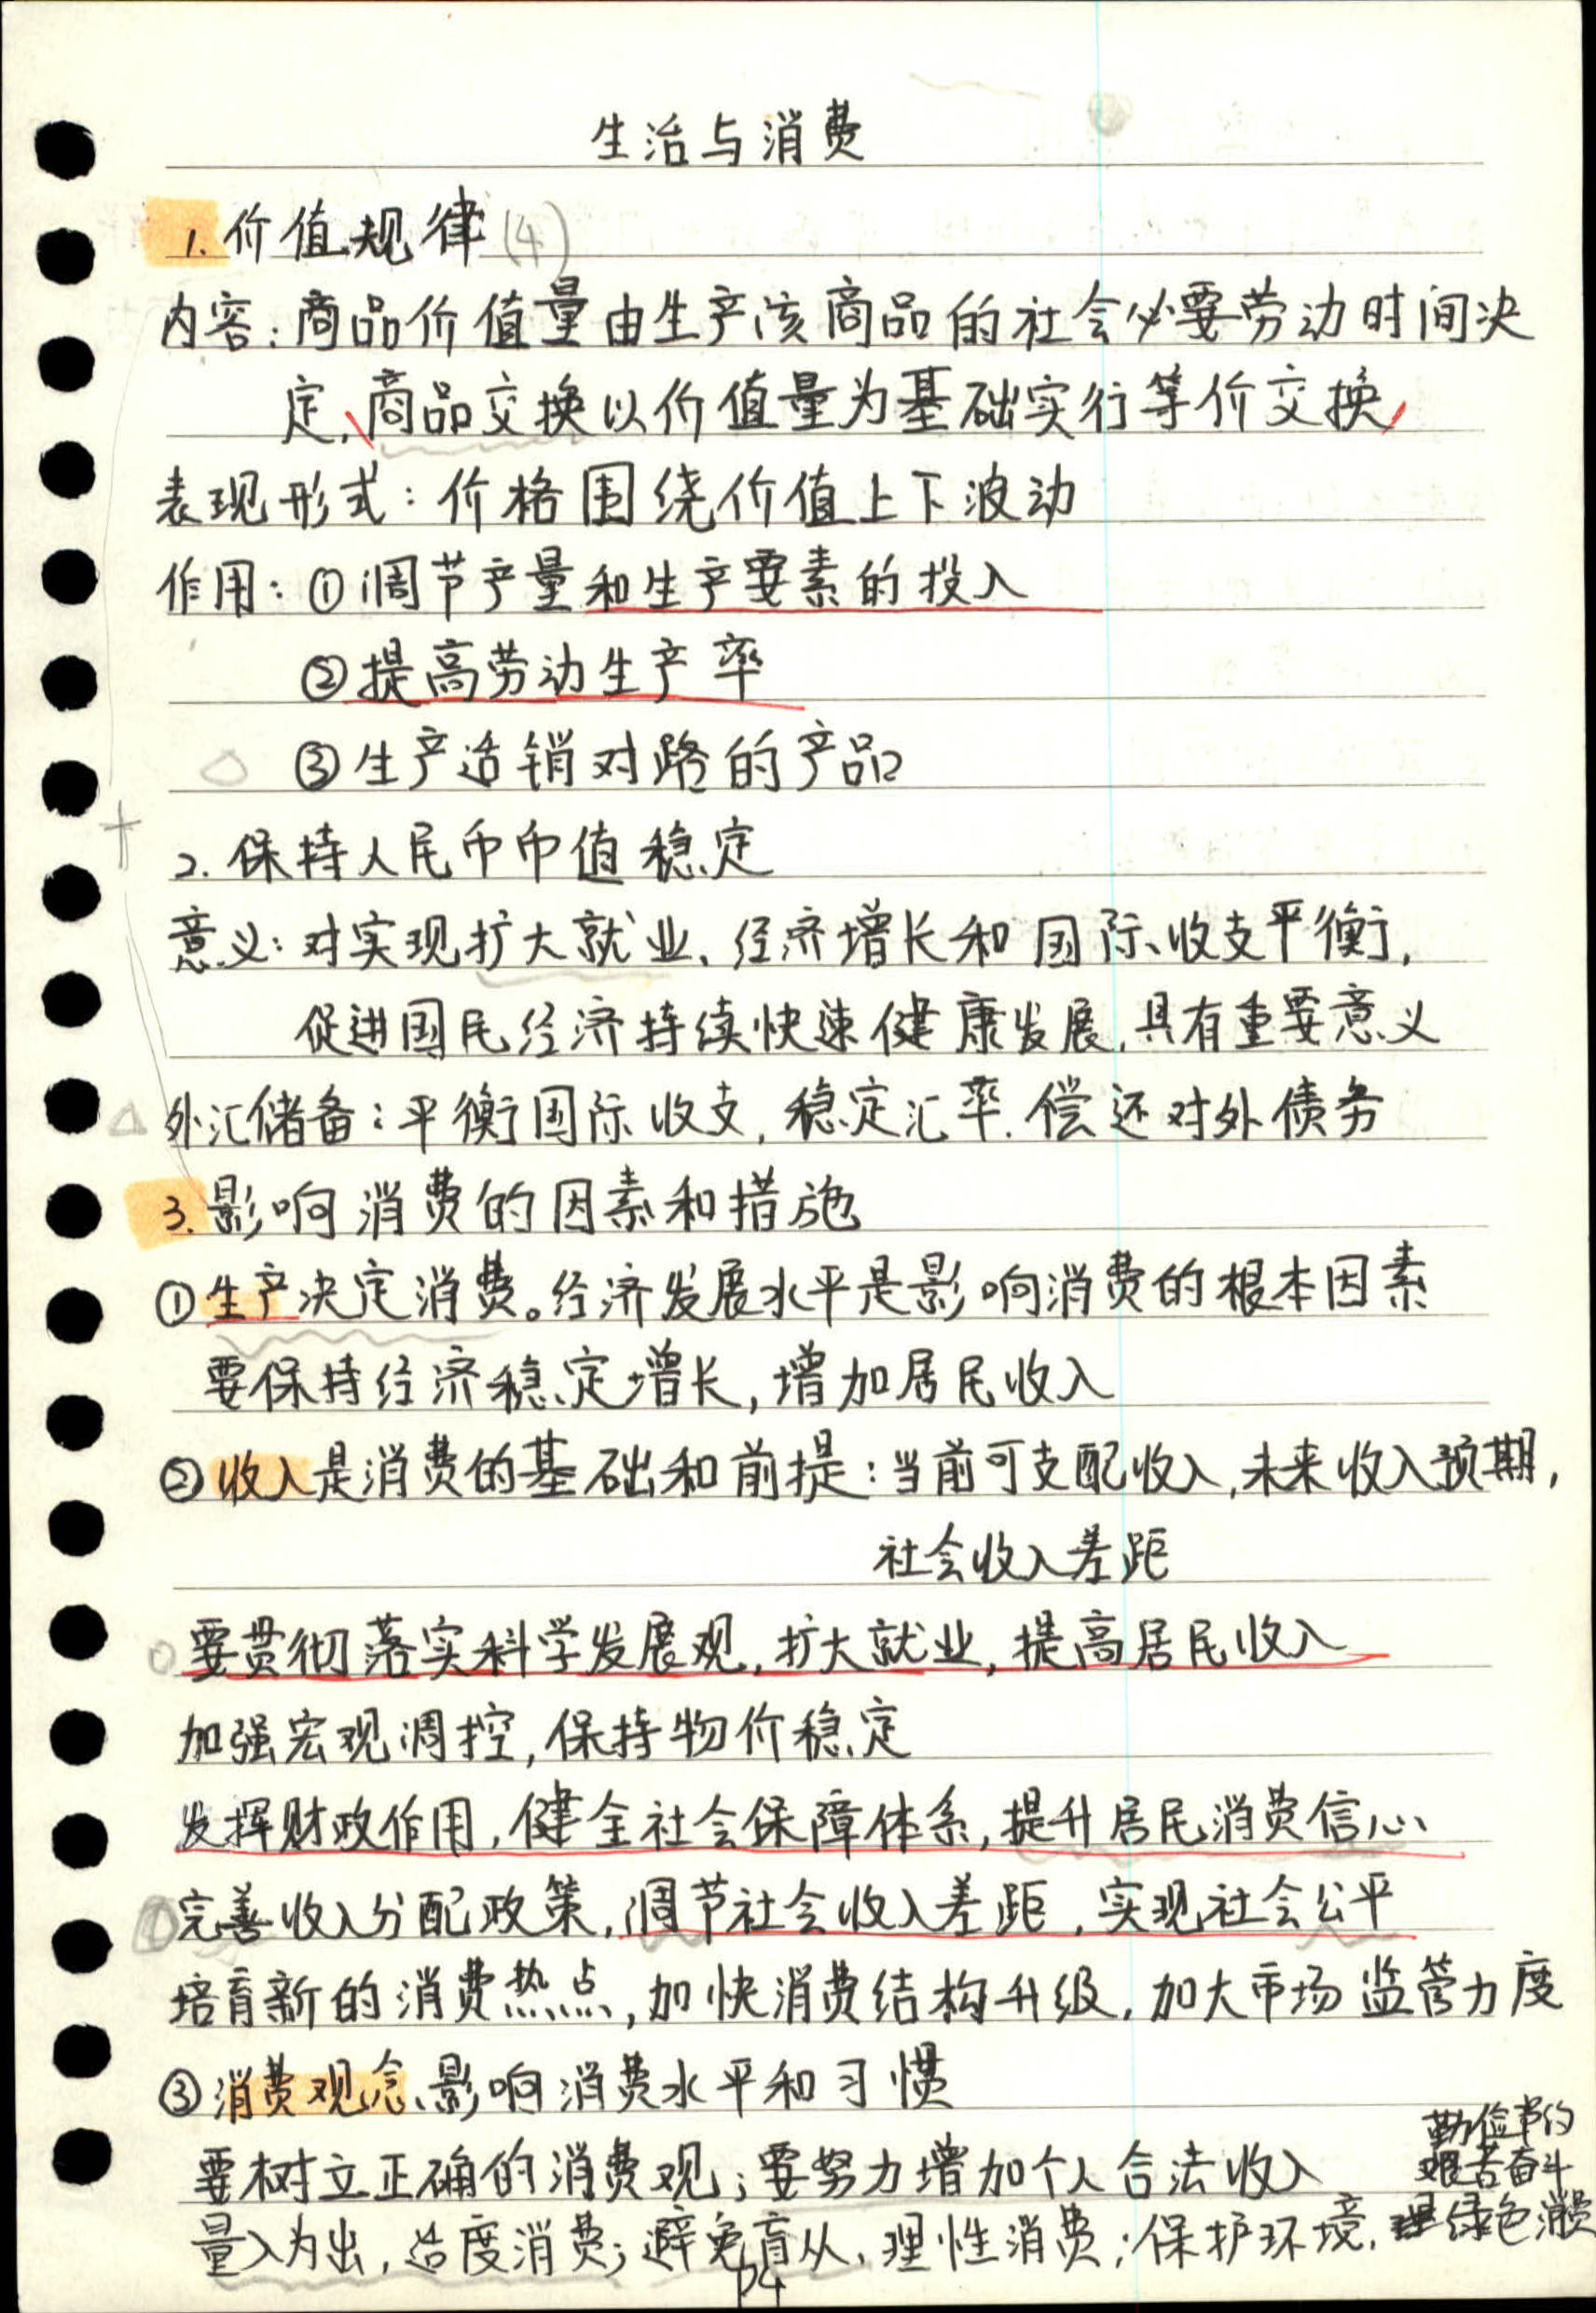 生活与消费
1. 价值规律 (4)
内容：商品价值量由生产该商品的社会必要劳动时间决
定，商品交换以价值量为基础实行等价交换
表现形式：价格围绕价值上下波动
作用：①调节产量和生产要素的投入
②提高劳动生产率
③生产适销对路的产品
2. 保持人民币币值稳定
意义：对实现扩大就业、经济增长和国际收支平衡，
促进国民经济持续快速健康发展，具有重要意义
外汇储备：平衡国际收支，稳定汇率．偿还对外债务
3. 影响消费的因素和措施
①生产决定消费。经济发展水平是影响消费的根本因素
要保持经济稳定增长，增加居民收入
②收入是消费的基础和前提：当前可支配收入，未来收入预期，
社会收入差距
要贯彻落实科学发展观，扩大就业，提高居民收入
加强宏观调控，保持物价稳定
发挥财政作用，健全社会保障体系，提升居民消费信心
完善收入分配政策，调节社会收入差距，实现社会公平
培育新的消费热点，加快消费结构升级，加大市场监管力度
③消费观念影响消费水平和习惯
要树立正确的消费观；要努力增加个人合法收入
量入为出，适度消费；避免盲从，理性消费；保护环境，绿色消费
勤俭节约
艰苦奋斗
P4